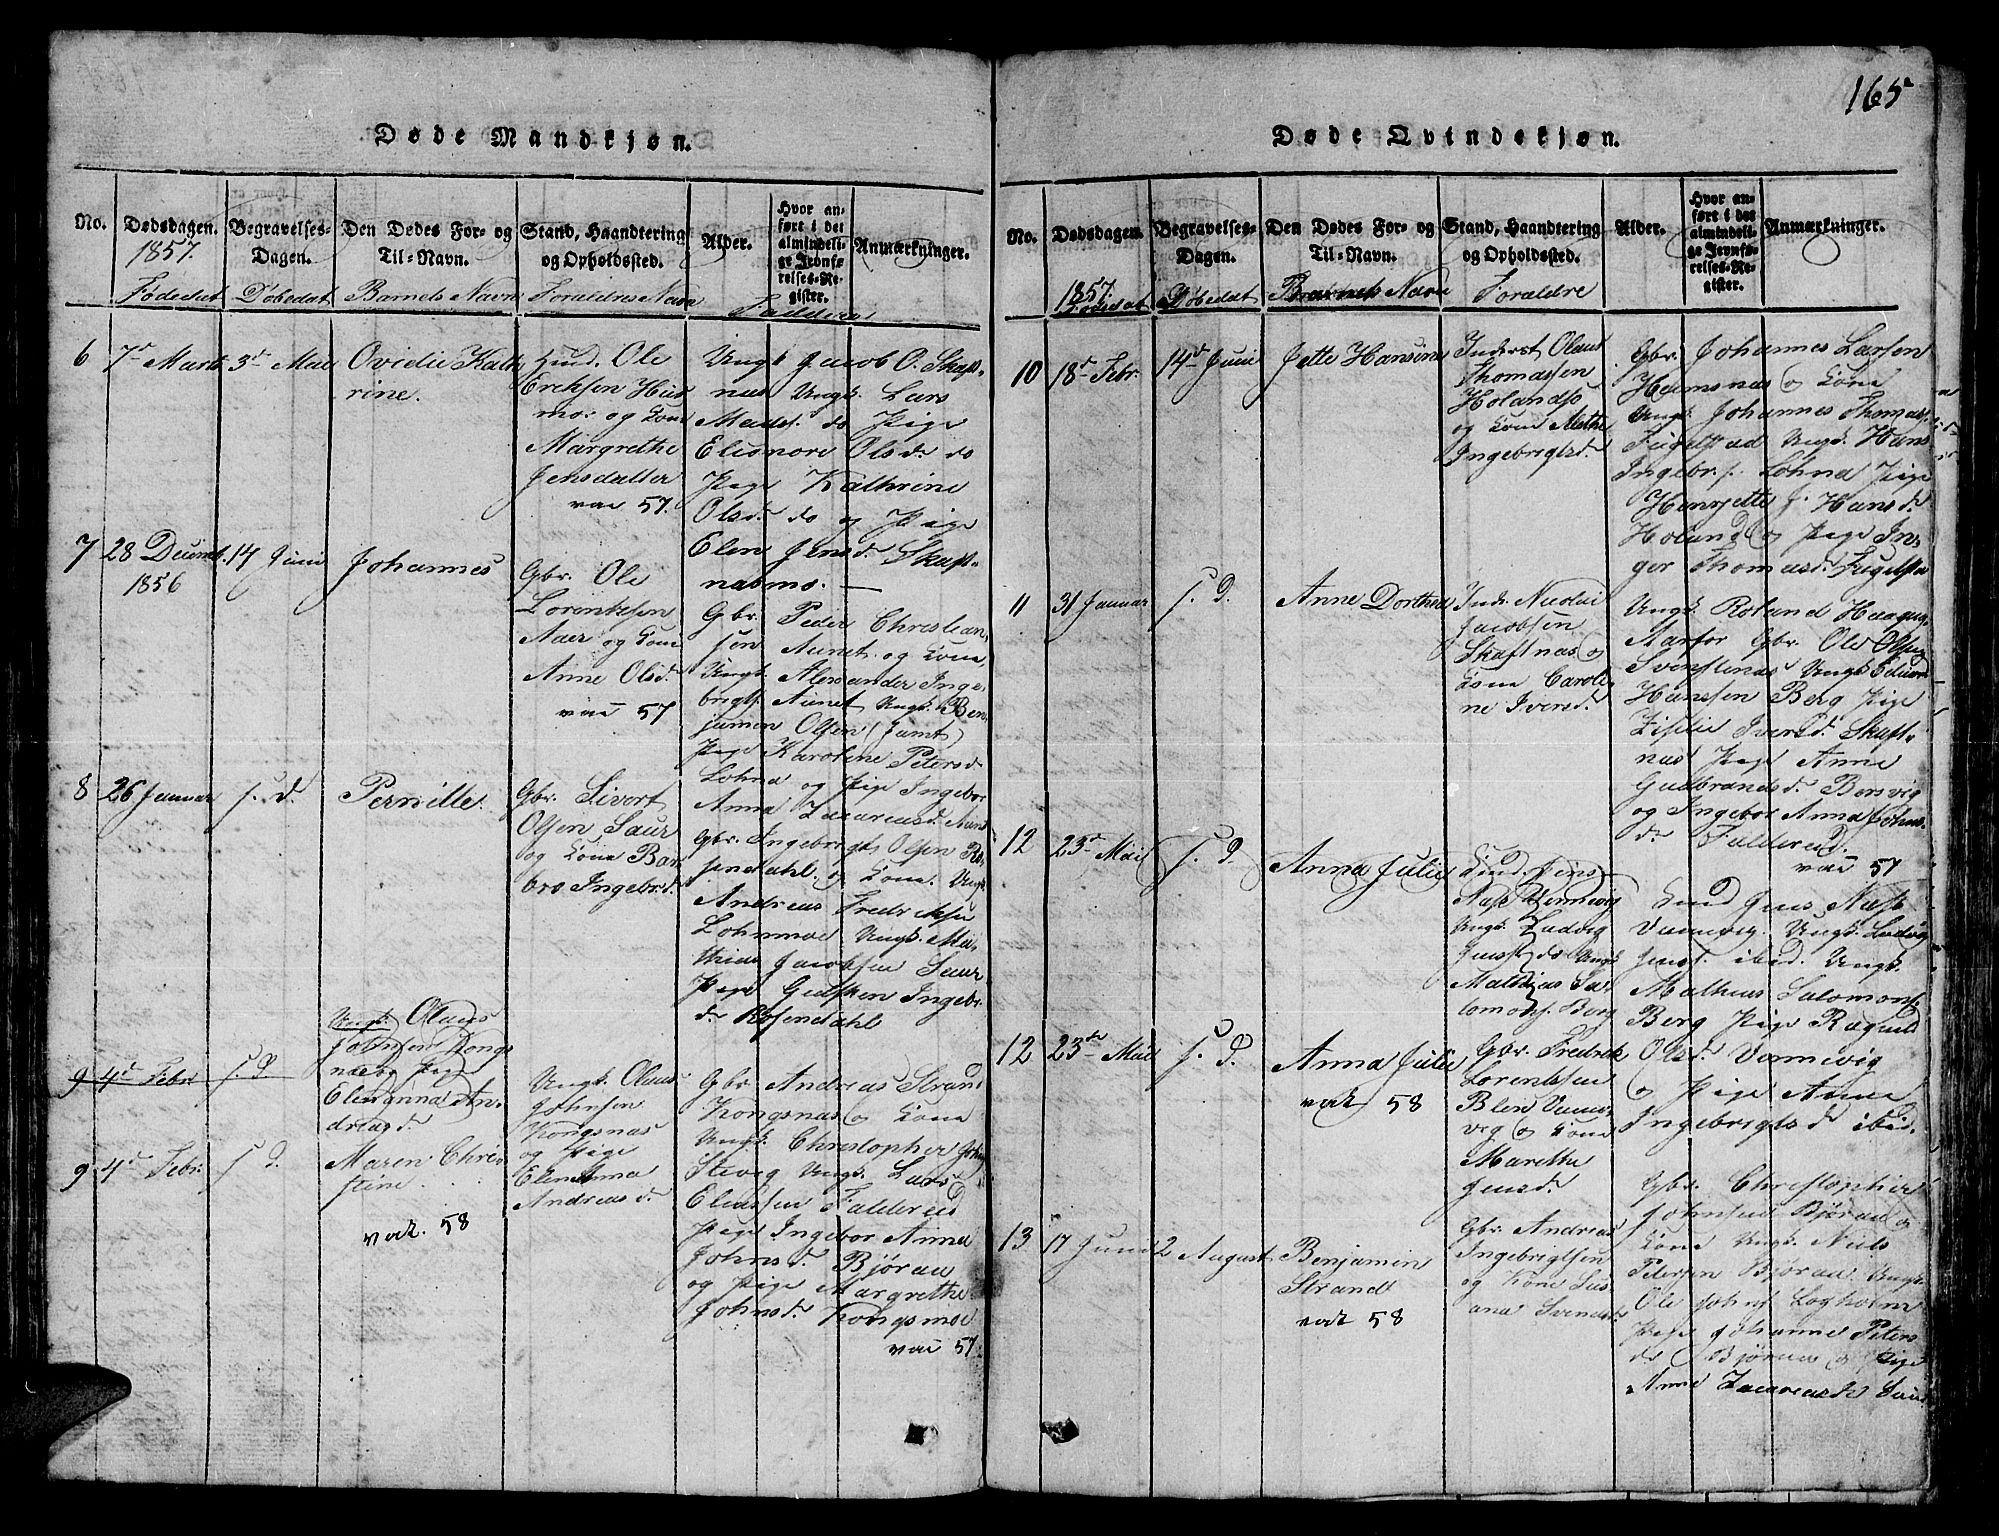 165
Døde Mandkjøn.
No.
Dødsdagen.
1857.
Fødedat
Begravelses-
Dagen.
Døbedat
Den Dødes For- og
Til-Navn.
Barnets Navn
Stand, Haandtering
og Opholdssted.
Foraldres Navn
Alder.
Hvor an-
ført i det
almindeli-
ge Jevnfø-
relses-Re-
gister.
Faddere
Anmærkninger.
6
7d Marts
3d Mai
Ovidie Kath
rine.
Huusd. Ole
Ericksen Hus
mo. og Kone
Margrethe
Jensdatter
vac 57.
Ungk Jacob O. Skaft-
nas Ungk. Lars
Madss. do Pige
Elionore Olsd. do
Pige Kathrine
Olsd. do og Pige
Elen Jensd. Skaft-
nasmo.
7
28 Decemb.
1856
14 Juni
Johannes
Gbr. Ole
Lorentsen
Aaer og Kone
Anne Olsd.
vac 57
Gbr. Peder Christian
sen Aunet og Kone,
Ungk. Alexander Inge-
brigts. Aunet Ungk. Ben-
jamin Olsen (Jamt)
Pige Karoline Petersd.
Lohna og Pige Ingebor
Anna Zacariasd. Aune
8
26 Januar
s. d.
Pernille.
Gbr. Sivert
Olsen Saur
og Kone Bar
bro Ingebr.d.
Gbr. Ingebrigt Olsen Ro-
sendahl. og Kone. Ungk.
Andreas Fredriksen
Lohnmoe Ungk. Ma-
thias Jacobsen Saur
Pige Gurken Ingebr.
d. Rosendahl
9
4d Febr
s. d.
Ungk. Olaus
Johnsen Kongs
næs og Pige
Elen Anna An-
dreasd.
9
4d Febr.
s. d.
Maren Chris
stine
vac. 58
Ungk. Olaus
Johnsen
Kongsnas
og Pige
Elen Anna
Andreas d.
Gbr. Andreas Strand
Kongsnas og Kone
Ungk. Christopher Johns
Stevig Ungk. Lars
Eliassen Faldereid
Pige Ingebor Anna
Johnsd. Bjørau
og Pige Margrethe
Johnsd. Kongsmoe
vac 57
Døde Qvindekjøn.
No.
Dødsdagen.
1857.
Fødedat
Begravelses-
Dagen.
Døbedat
Den Dødes For- og
Til-Navn.
Barnets Navn
Stand, Haandtering
og Opholdssted.
Foraldre
Alder.
Hvor an-
ført i det
almindeli-
ge Jevnfø-
relses-Re-
gister.
Anmærkninger.
10
18d Febr.
14d Juni
Jette Hansine
Inderst Olaus
Thomassen
Holandsø
og Kone Methe
Ingebrigtsd.
Gbr. Johannes Larsen
Hemsnas og Kone
Ungk. Johannes Thomas
Fugelstad Ungk. Hans
Ingebr.s. Lohna Pige
Henrjette J. Hansd.
Holand og Pige In-
ger Thomasd. Fugelsta
11
31 Januar
s. d.
Anne Dorthea
Inds. Nicolai
Jacobsen
Skaftnas og
Kone Caroli-
ne Iversd.
Ungk. Roland Haagus.
Aarfor Gbr. Ole Olsen
Svenstenas Ungk. Eduar
Hanssen Berg Pige
Zisilie Iversd. Skaft-
nas Pige Anne
Gudbrandsd. Borsvig
og Ingebor Anna Johns-
d. Faldereid.
vac 57
12
23d Mai
s. d.
Anna Julie
Huusd. Jens
Næss Vennevig
Ungk Ludvig
Jenss. do Ungk
Mathias Sa-
lomons. Berg
Huusd Jens Næss
Vannvig. Ungk. Ludvig
Jenss. ibid. Ungk.
Mathias Salomons.
Berg Pige Ragnild
Olsd. Vannevig
og Pige Anne
Ingebrigtsd ibid.
12
23de Mai
s. d.
Anna Julie
vac 58
Gbr. Fredrik
Lorentsen
Blen Vanne-
vig og Kone
Marethe
Jensd.
13
17 Juni
2 August
Benjamin
Strand
vac 58
Gbr. Andreas
Ingebrigtsen
og Kone Sus
ana Svendsd.
Gbr. Christopher
Johnsen Bjørau og
Kone Ungk. Niels
Petersen Bjørau. Ungk.
Ole Johns. Legholm
Pige Johanne Peters
d. Bjørau og Pige
Anne Zacariasd.